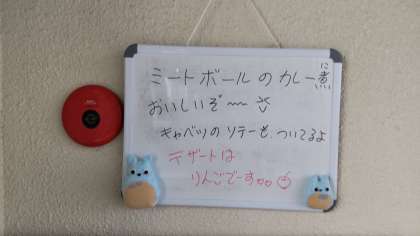 ミートボールのカレー煮
に
おいしいぞ〜〜
キャベツのソテーも、ついてるよ
デザートは
りんごでーす